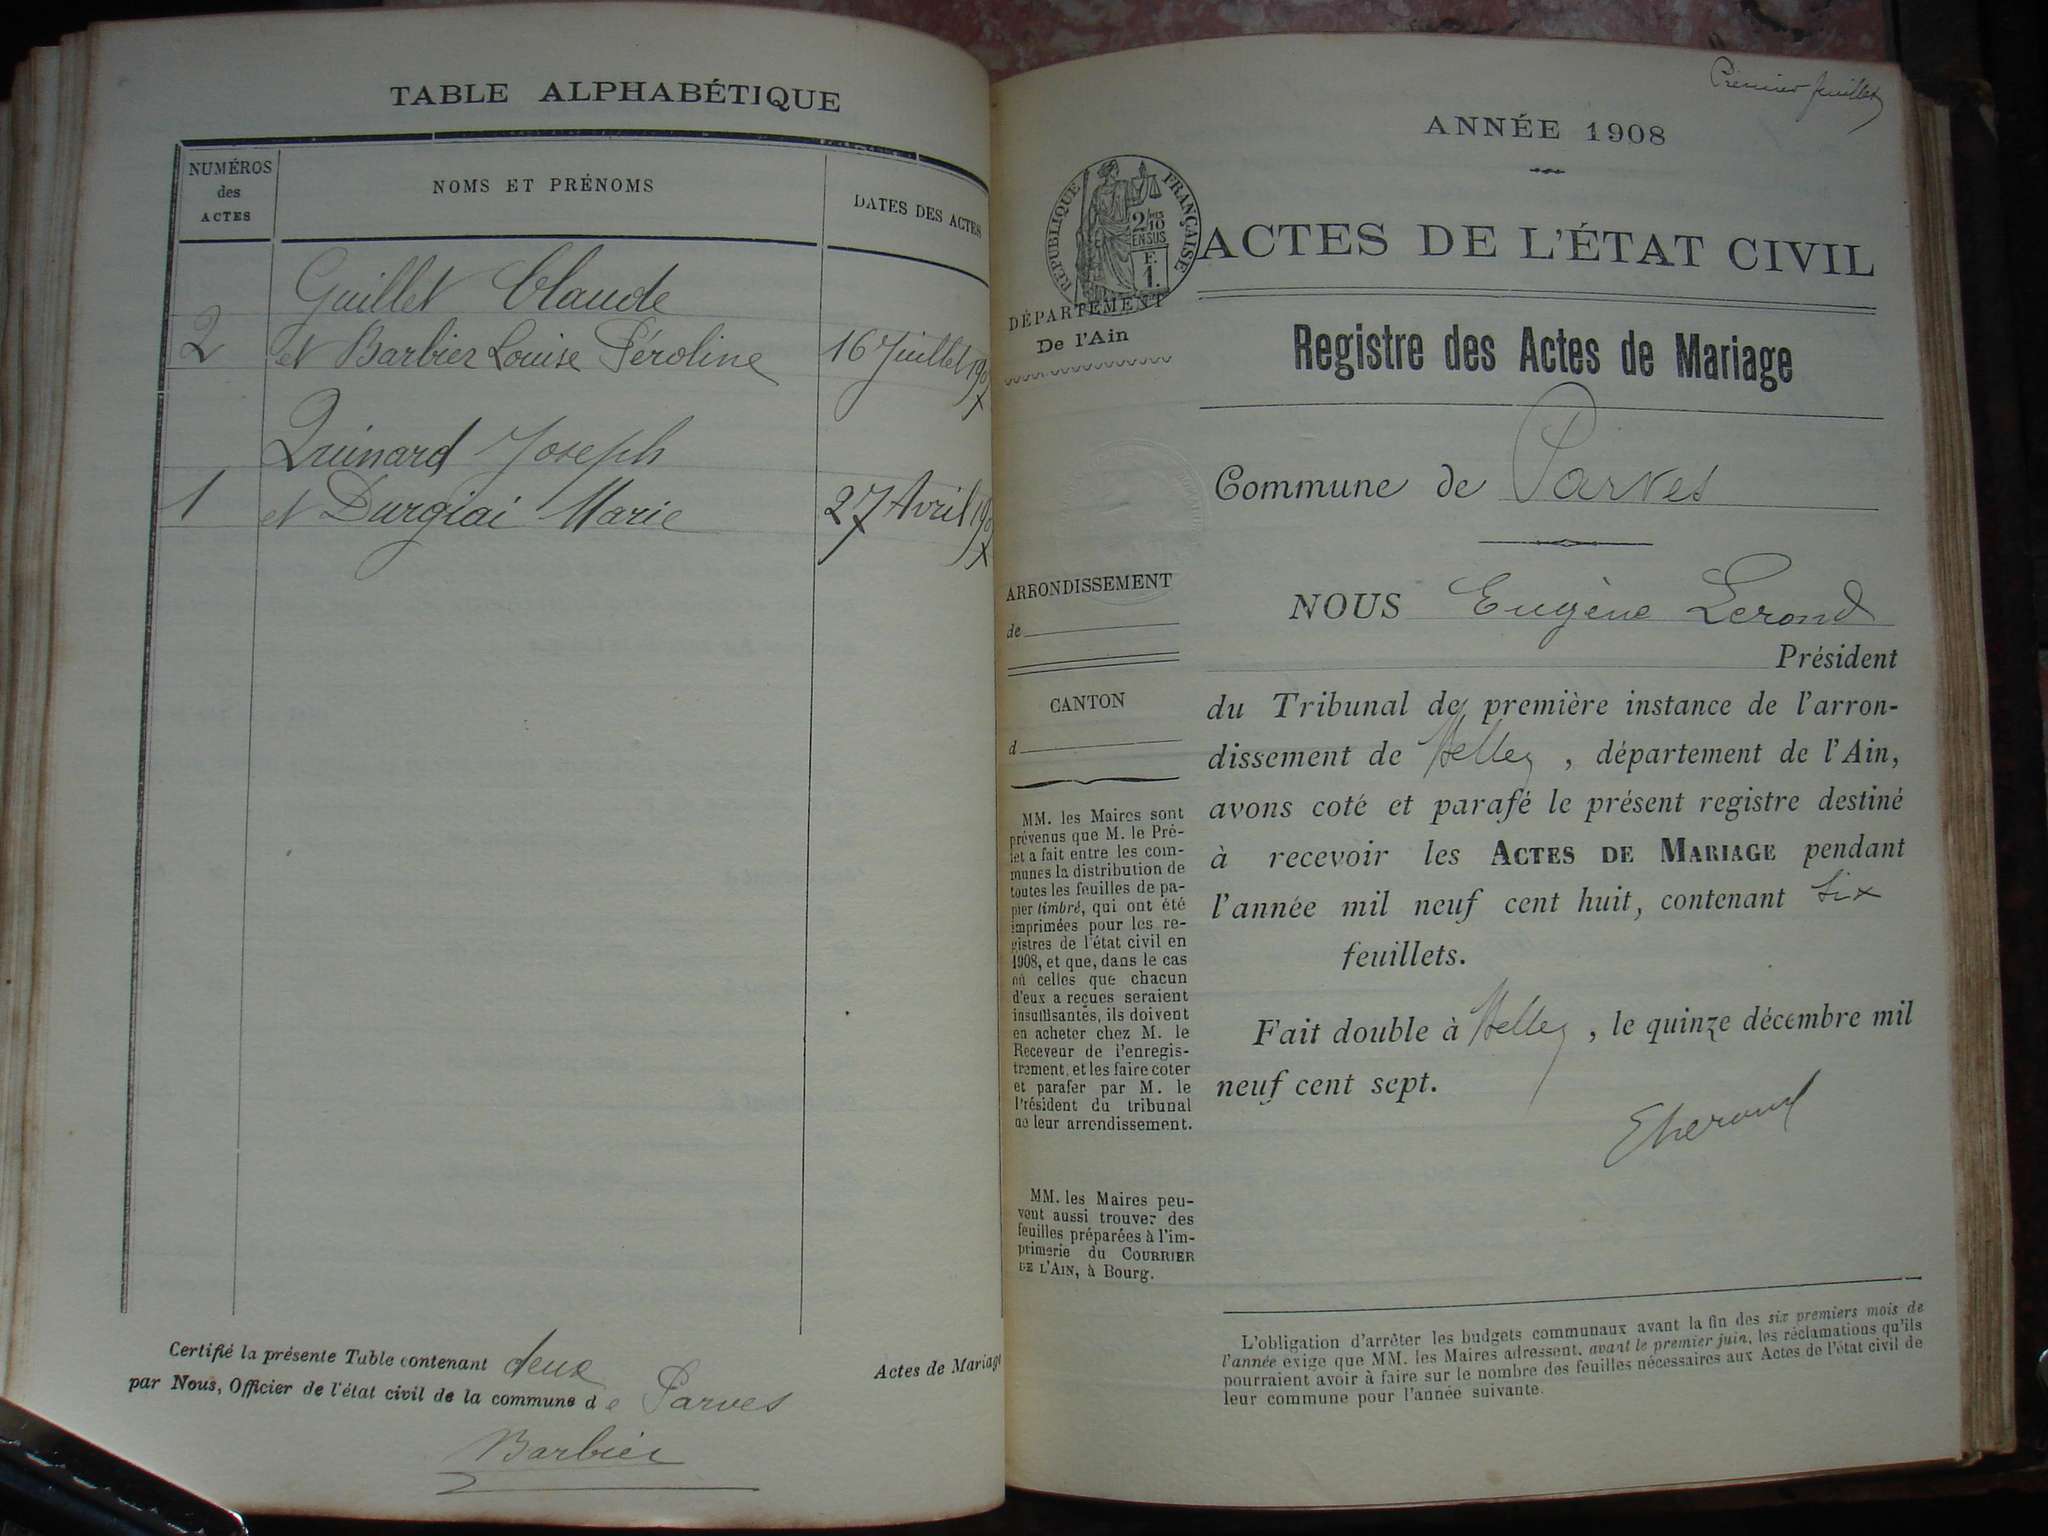 TABLE ALPHABÉTIQUE
NUMÉROS des ACTES
NOMS ET PRÉNOMS
DATES DES ACTES
Guillet Claude
2 et Barbier Louise Péroline 16 Juillet
Quinard Joseph
1 et Durgiai Marie 27 Avril
Certifié la présente Table contenant deux Actes de Mariage
par Nous, Officier de l'état civil de la commune de Parves
Barbier
Premier feuillet
ANNÉE 1908
RÉPUBLIQUE FRANÇAISE
2/10
EN SUS
F.
1.
ACTES DE L'ÉTAT CIVIL
DÉPARTEMENT
De l'Ain
Registre des Actes de Mariage
Commune de Parves
ARRONDISSEMENT
de
CANTON
d
MM. les Maires sont
prévenus que M. le Pré-
fet a fait entre les com-
munes la distribution de
toutes les feuilles de pa-
pier timbré, qui ont été
imprimées pour les re-
gistres de l'état civil en
1908, et que, dans le cas
où celles que chacun
d'eux a reçues seraient
insuffisantes, ils doivent
en acheter chez M. le
Receveur de l'enregis-
trement, et les faire coter
et parafer par M. le
Président du tribunal
de leur arrondissement.
MM. les Maires peu-
vent aussi trouver des
feuilles préparées à l'im-
primerie du COURRIER
DE L'AIN, à Bourg.
NOUS Eugène Lerond
Président
du Tribunal de première instance de l'arron-
dissement de Belley, département de l'Ain,
avons coté et parafé le présent registre destiné
à recevoir les ACTES DE MARIAGE pendant
l'année mil neuf cent huit, contenant six
feuillets.
Fait double à Belley, le quinze décembre mil
neuf cent sept.
ELerond
L'obligation d'arrêter les budgets communaux avant la fin des six premiers mois de
l'année exige que MM. les Maires adressent, avant le premier juin, les réclamations qu'ils
pourraient avoir à faire sur le nombre des feuilles nécessaires aux Actes de l'état civil de
leur commune pour l'année suivante.